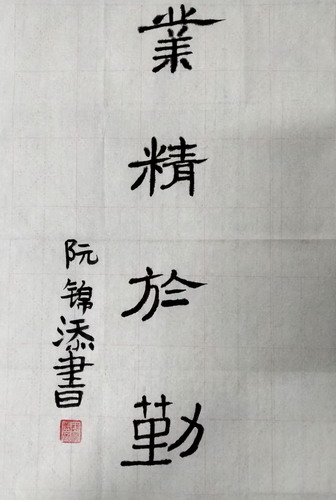 業精於勤
阮锦添書